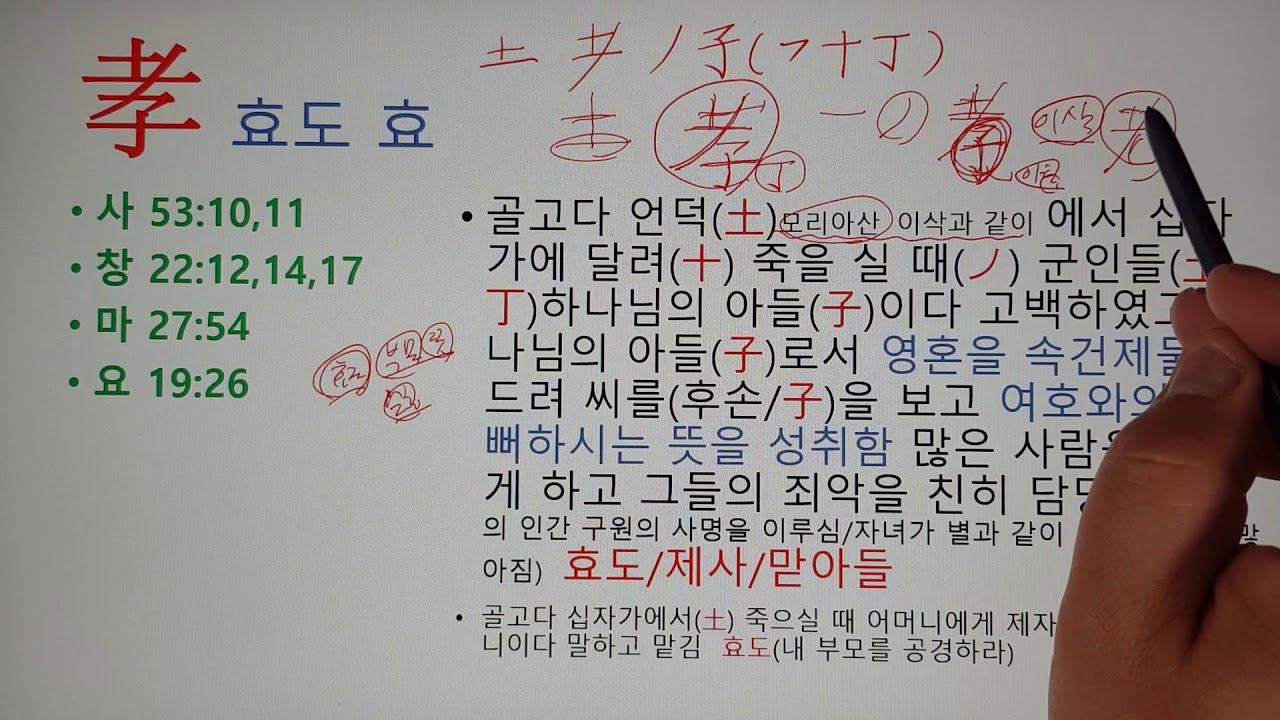 孝 효도 효
土 耂 ノ 子(フ十丁)
一 ノ
이삭 老
丁
• 사 53:10,11
• 창 22:12,14,17
• 마 27:54
• 요 19:26
효도 부모 뜻
• 골고다 언덕(土)모리아산 이삭과 같이 에서 십자
가에 달려(十) 죽을 실 때(ノ) 군인들(
丁)하나님의 아들(子)이다 고백하였고
나님의 아들(子)로서 영혼을 속건제물
드려 씨를(후손/子)을 보고 여호와의
뻐하시는 뜻을 성취함 많은 사람을
게 하고 그들의 죄악을 친히 담당
의 인간 구원의 사명을 이루심/자녀가 별과 같이 많
아짐) 효도/제사/맏아들
• 골고다 십자가에서(土) 죽으실 때 어머니에게 제자
니이다 말하고 맡김 효도(내 부모를 공경하라)